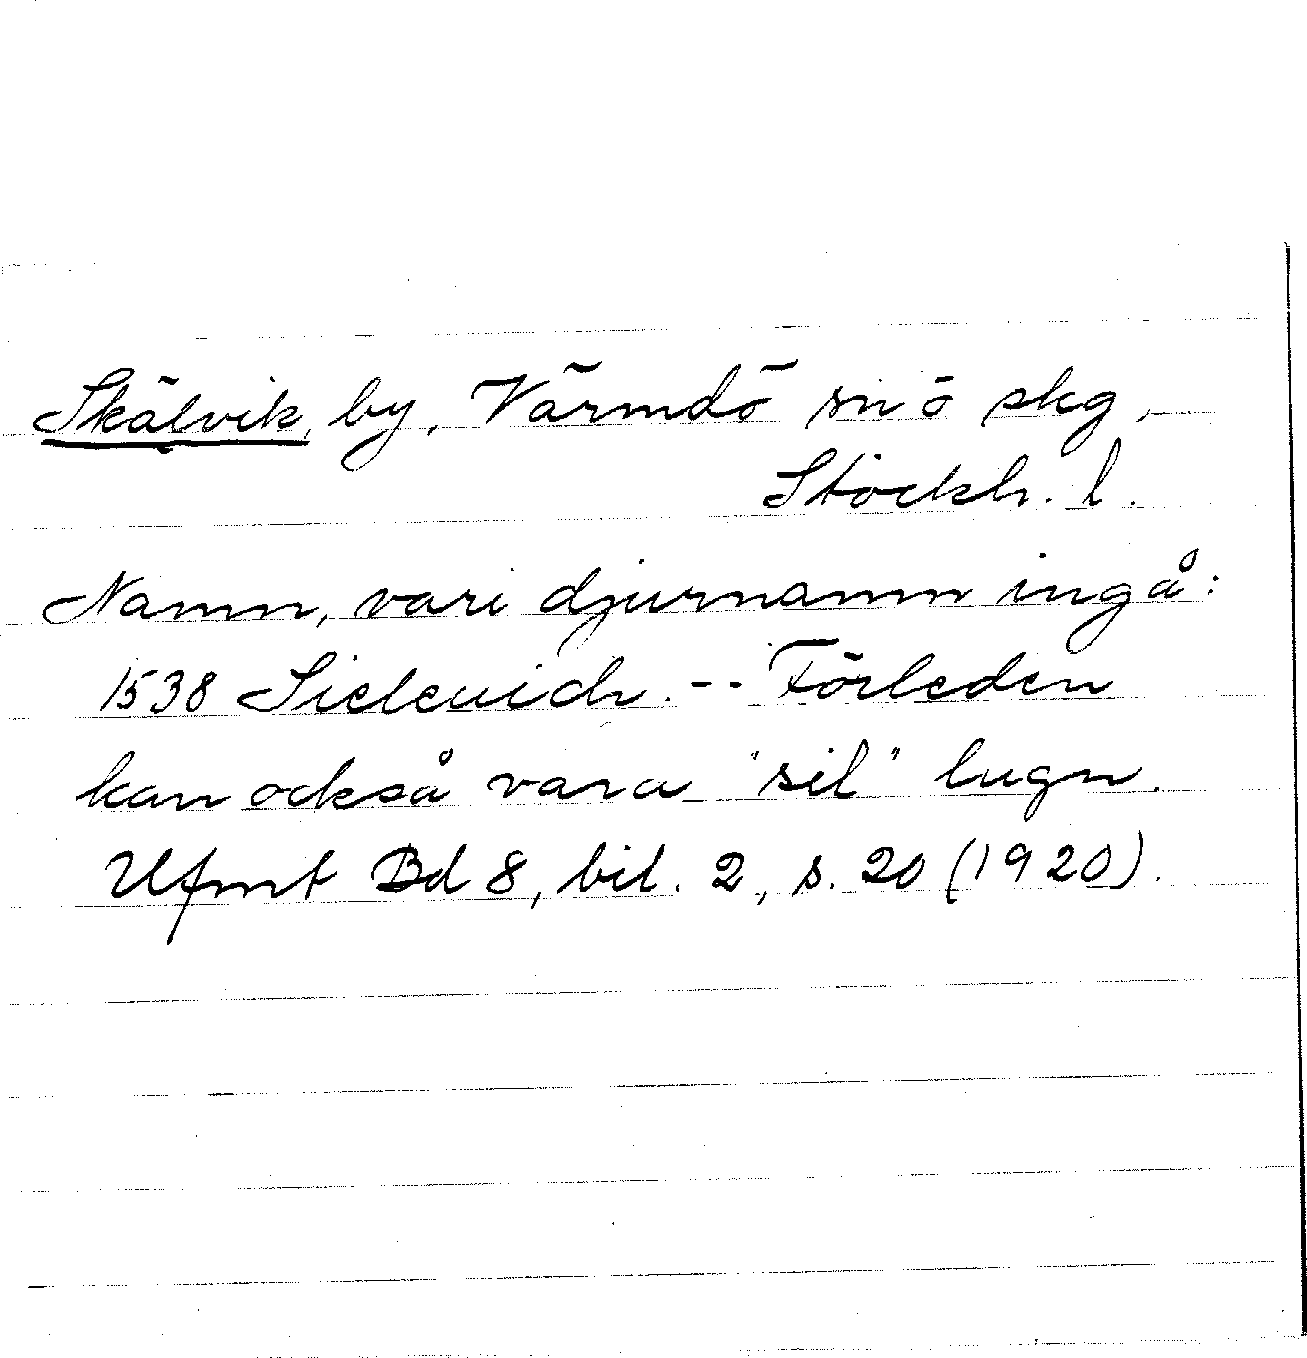 Skälvik, by, Värmdö sn o skg,
Stockh. l.
Namn, vari djurnamn ingå:
1538 Sieleuich. -- Förleden
kan också vara "sil" lugn.
Ufmt Bd 8, bil. 2, s. 20 (1920).